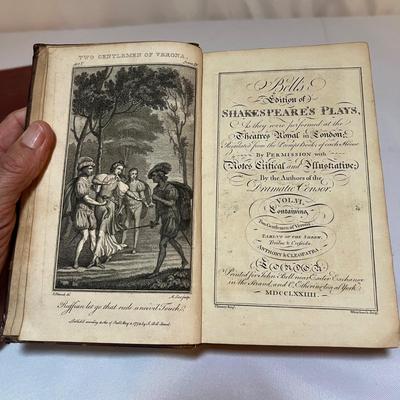 TWO GENTLEMEN OF VERONA.
Act V. Scene IV.
Ruffian let go that rude uncivil Touch.
Bell's
Edition of
SHAKESPEARE'S PLAYS,
As they were performed at the
Theatres Royal in London;
Regulated from the Prompt Books of each House
By PERMISSION with
Notes Critical and Illustrative;
By the Authors of the
Dramatic Censor.
VOL. VI.
Containing
Two Gentlemen of Verona
TAMING OF THE SHREW,
Troilus & Cressida
ANTHONY & CLEOPATRA
LONDON
Printed for John Bell near Exeter Exchange
in the Strand, and C. Etherington at York
MDCCLXXIIII.